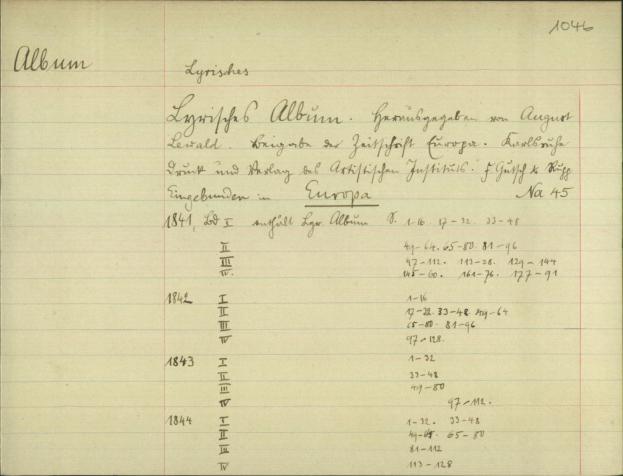 1046
Album
Lyrisches
Lyrisches Album. Herausgegeben von August
Lewald. Beigabe der Zeitschrift Europa. Karlsruhe
Druck und Verlag des Artistischen Instituts. F. Gutsch & Rupp
Eingebunden in Europa Na 45
1841, Bd I enthält Lyr. Album S. 1-16. 17-32. 33-48
II 49-64. 65-80. 81-96
III 97-112. 113-28. 129-144
IV. 145-60. 161-76. 177-91
1842 I 1-16
II 17-32. 33-48. 49-64
III 65-80. 81-96
IV 97-128.
1843 I 1-32
II 33-48
III 49-80
IV 97-112.
1844 I 1-32. 33-48
II 49-64. 65-80
III 81-112
IV 113-128